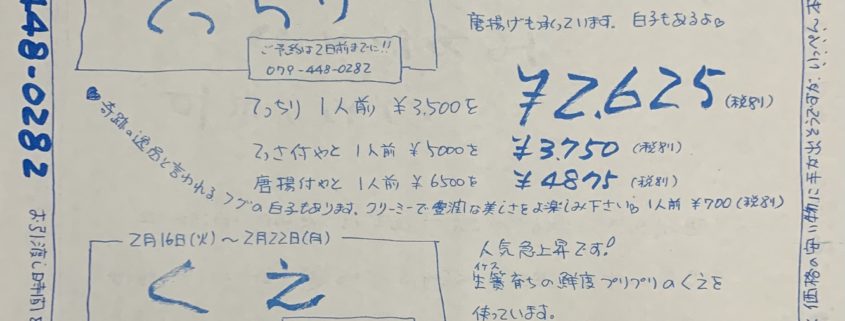 てっちり
唐揚げも承っています。白子もあるよ♡
ご予約は2日前までに!!
079-448-0282
てっちり 1人前 ¥3,500を
¥2,625(税別)
てっさ付やと 1人前 ¥5000を ¥3,750(税別)
唐揚付やと 1人前 ¥6500を ¥4875(税別)
奇跡の逸品と言われる フグの白子もあります。クリーミーで豊潤な美しさをお楽しみ下さい。 1人前 ¥700(税別)
2月16日(火)~2月22日(月)
くえ
人気急上昇です!
イケス
生簀育ちの鮮度プリプリのくえを
使っています。
448-0282
お引渡し時間